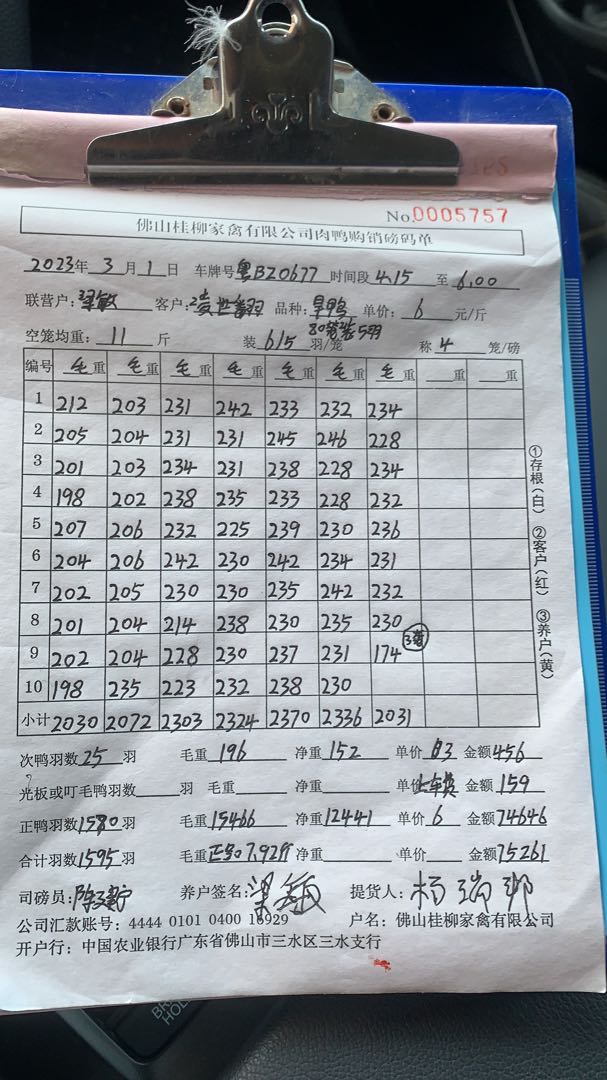 No. 0005757
佛山桂柳家禽有限公司肉鸭购销磅码单
2023年 3 月 1 日 车牌号 粤BZ0677 时间段 4.15 至 6.00
联营户: 梁敏 客户: 品种: 旱鸭 单价: 6 元/斤
空笼均重: 11 斤 装 6/5 羽/笼 80笼装5羽 称 4 笼/磅
编号 毛重 毛重 毛重 毛重 毛重 毛重 毛重 重 重
1 212 203 231 242 233 232 234
2 205 204 231 231 245 246 228
3 201 203 234 231 238 228 234
4 198 202 238 235 233 228 232
5 207 206 232 225 239 230 236
6 204 206 242 230 242 234 231
7 202 205 230 230 235 242 232
8 201 204 214 238 230 235 230
9 202 204 228 230 237 231 174 3笼
10 198 235 223 232 238 230
小计 2030 2072 2303 2324 2370 2336 2031
次鸭羽数 25 羽 毛重 196 净重 152 单价 3 金额 456
光板或叮毛鸭羽数 羽 毛重 净重 单价 上车费 金额 159
正鸭羽数 羽 毛重 15466 净重 12441 单价 6 金额 74646
合计羽数 1595 羽 毛重 正均7.929 净重 单价 金额 75261
司磅员: 养户签名: 梁敏 提货人:
公司汇款账号: 4444 0101 0400 18929 户名: 佛山桂柳家禽有限公司
开户行: 中国农业银行广东省佛山市三水区三水支行
①存根(白) ②客户(红) ③养户(黄)